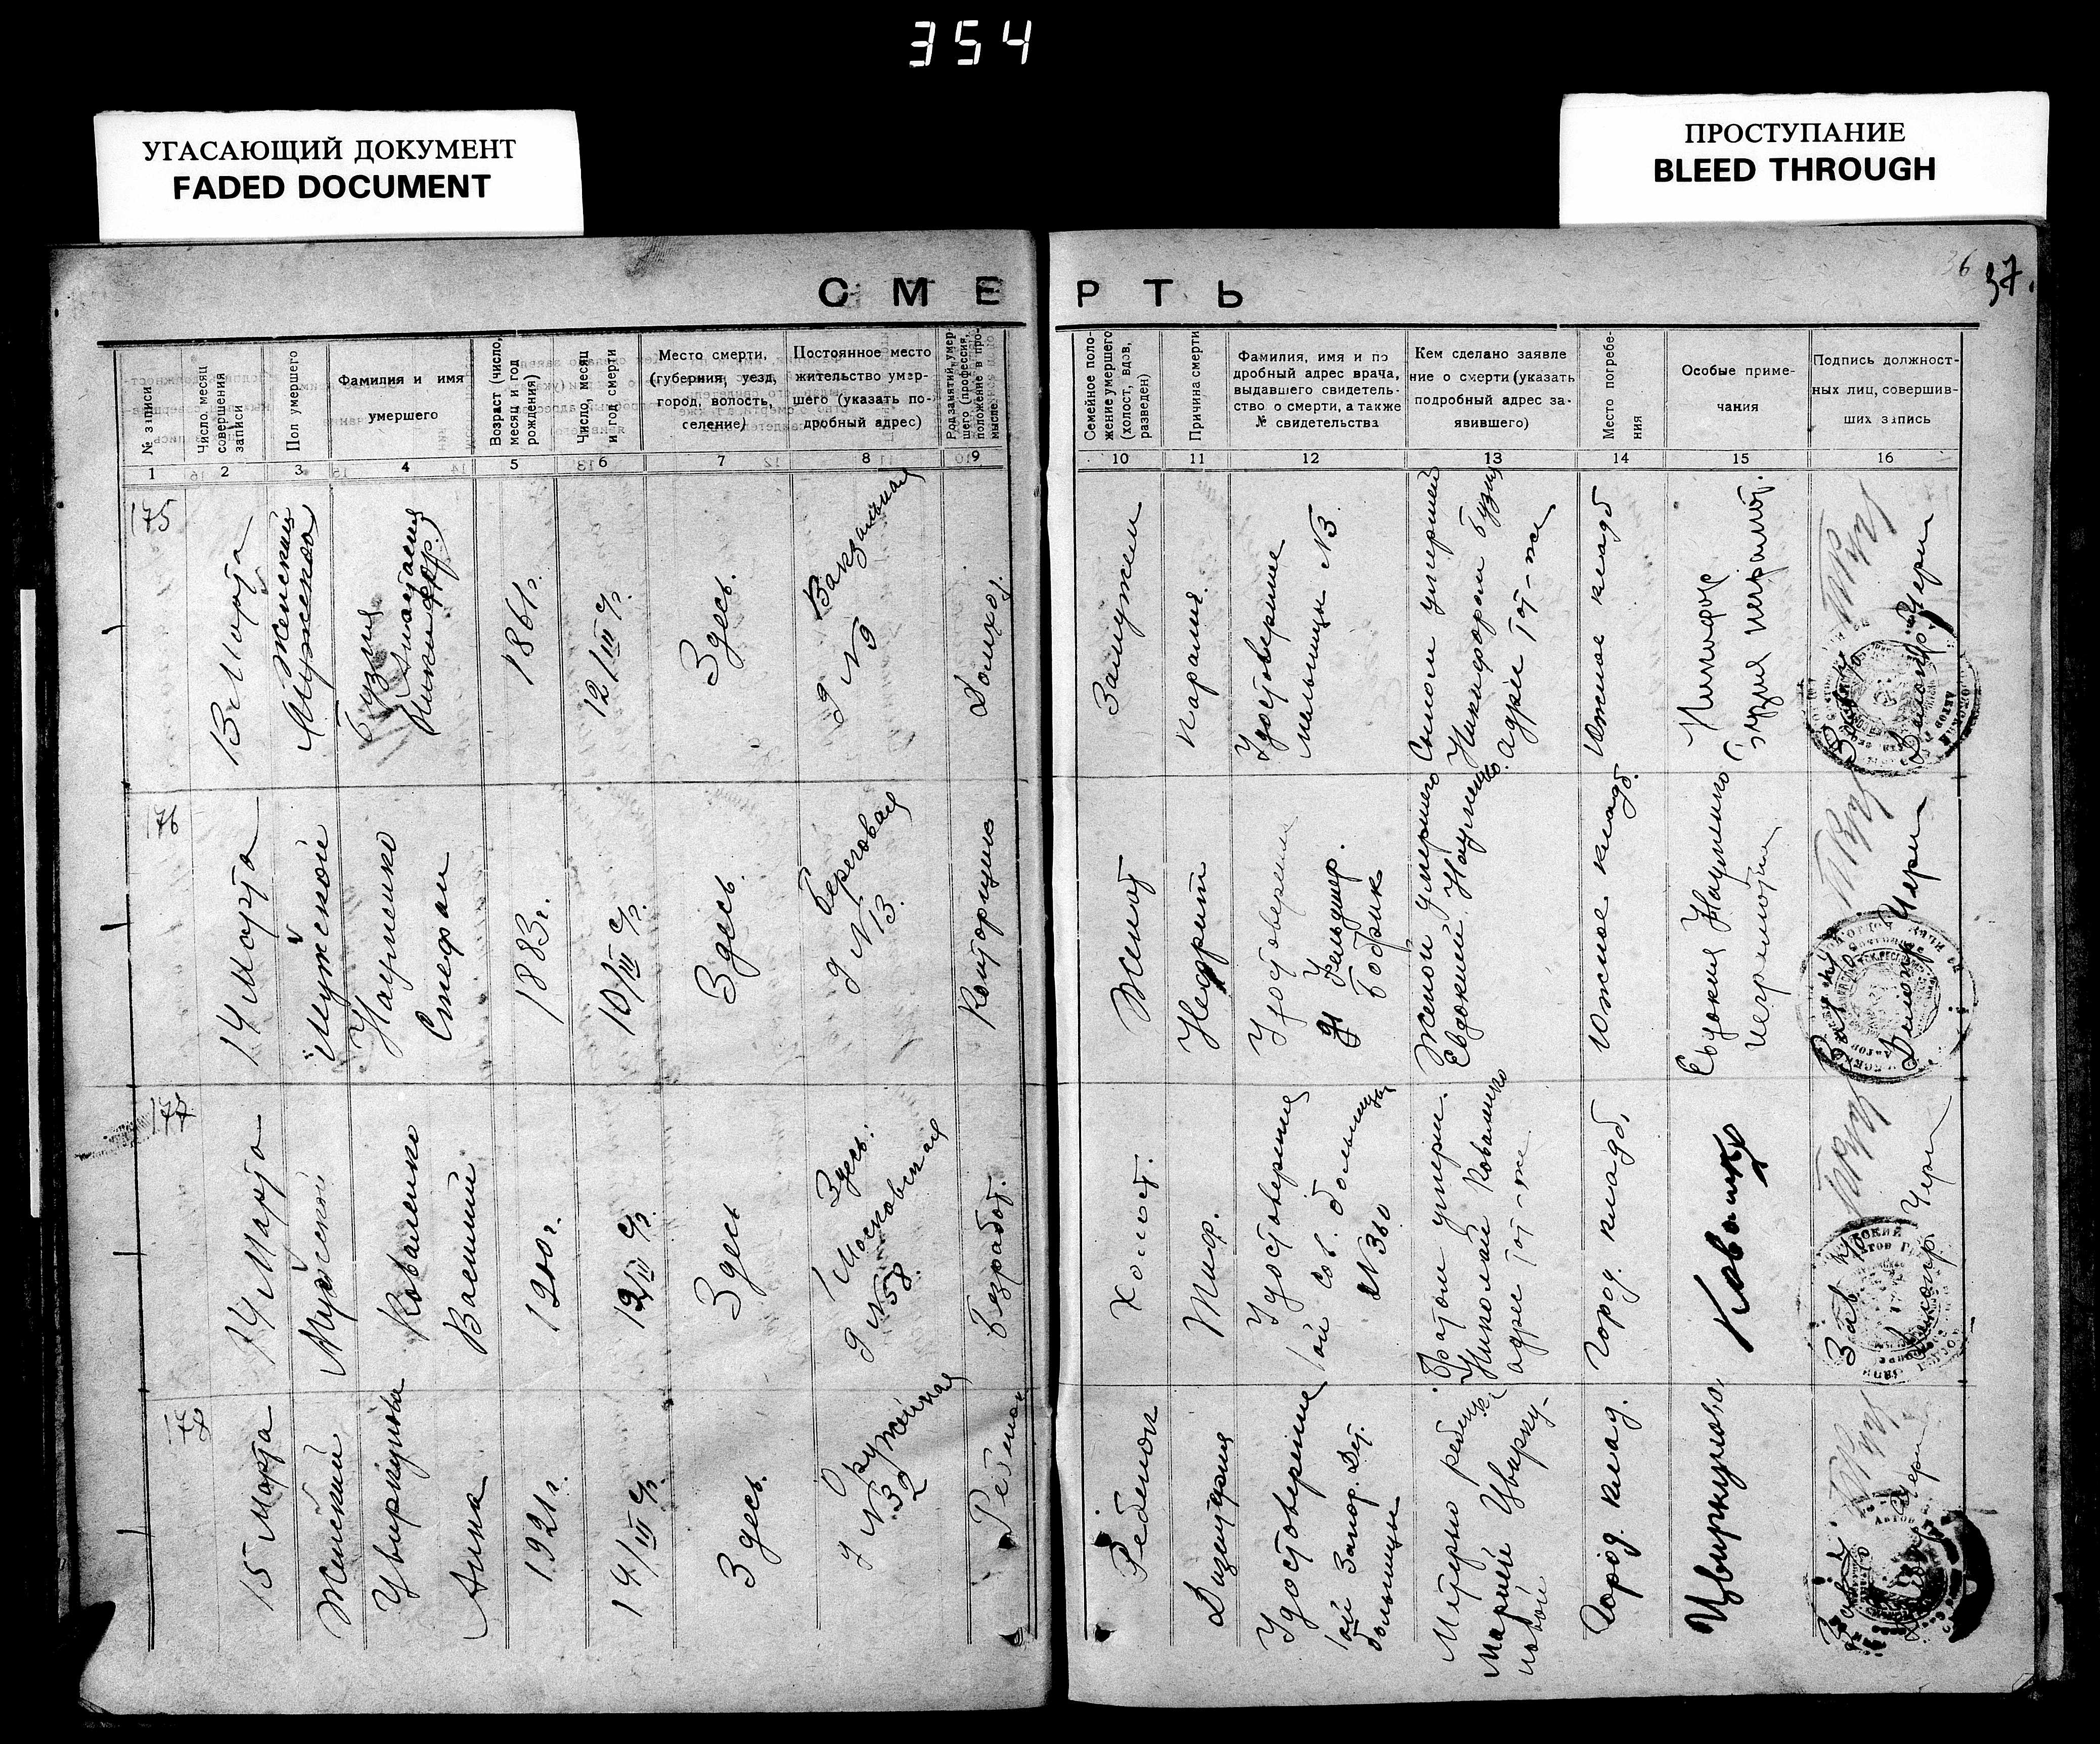 354
УГАСАЮЩИЙ ДОКУМЕНТ
FADED DOCUMENT
ПРОСТУПАНИЕ
BLEED THROUGH
36 37.
СМЕРТЬ
№ записи
Число, месяц совершения записи
Пол умершего
Фамилия и имя
умершего
Возраст (число,
месяц и год
рождения)
Число, месяц
и год смерти
Место смерти,
(губерния, уезд,
город, волость,
селение)
Постоянное место
жительство умер-
шего (указать по-
дробный адрес)
Род занятий, умер-
шего (профессия,
положение в про-
мысле)
Семейное поло-
жение умершего
(холост, вдов,
разведен)
Причина смерти
Фамилия, имя и по
дробный адрес врача,
выдавшего свидетель-
ство о смерти, а также
№ свидетельства
Кем сделано заявле
ние о смерти (указать
подробный адрес за-
явившего)
Место погребе-
ния
Особые приме-
чания
Подпись должност-
ных лиц, совершив-
ших запись
1 2 3 4 5 6 7 8 9 10 11 12 13 14 15 16
175
13 Марта
Женский
Мужской
Бузия
Анастасия
Никифор.
1861г.
12/III с/г.
Здесь.
Вакзальная
д N 9
Домхоз.
Замужем
Удостоверение
больницы N3
Сыном умершей
Никифором Бузия
адрес тот-же
Южное кладб
176
14 Марта
Мужской
Науменко
Стефан
1883г.
10/III с/г.
Здесь.
Береговая
д N 13.
Конторщик
Женат
Нефрит
Удостоверение
Бобрик
Женой умершего
Евдокией Науменко.
Южное кладб.
Евдокия Науменко
неграмотна
177
14 Марта
Мужской
Коваленко
Василий
1900г.
12/III с/г.
Здесь
Здесь.
Московская
д N 58.
Безработ.
Холост.
Тиф.
Удостоверение
1ой Сов. больницы
N 360
Братом умерш.
Николай Коваленко
адрес тот-же.
Город. кладб.
178
15 Марта
Женский
Цвиркунова
Анна
1921г.
14/III с/г.
Здесь.
N 32
Ребенок
Ребенок
Дизентерия
Удостоверение
1ой Запор. Дет.
больницы
Матерью ребенка
Марией Цвирку-
новой
Город. клад.
Цвиркунова